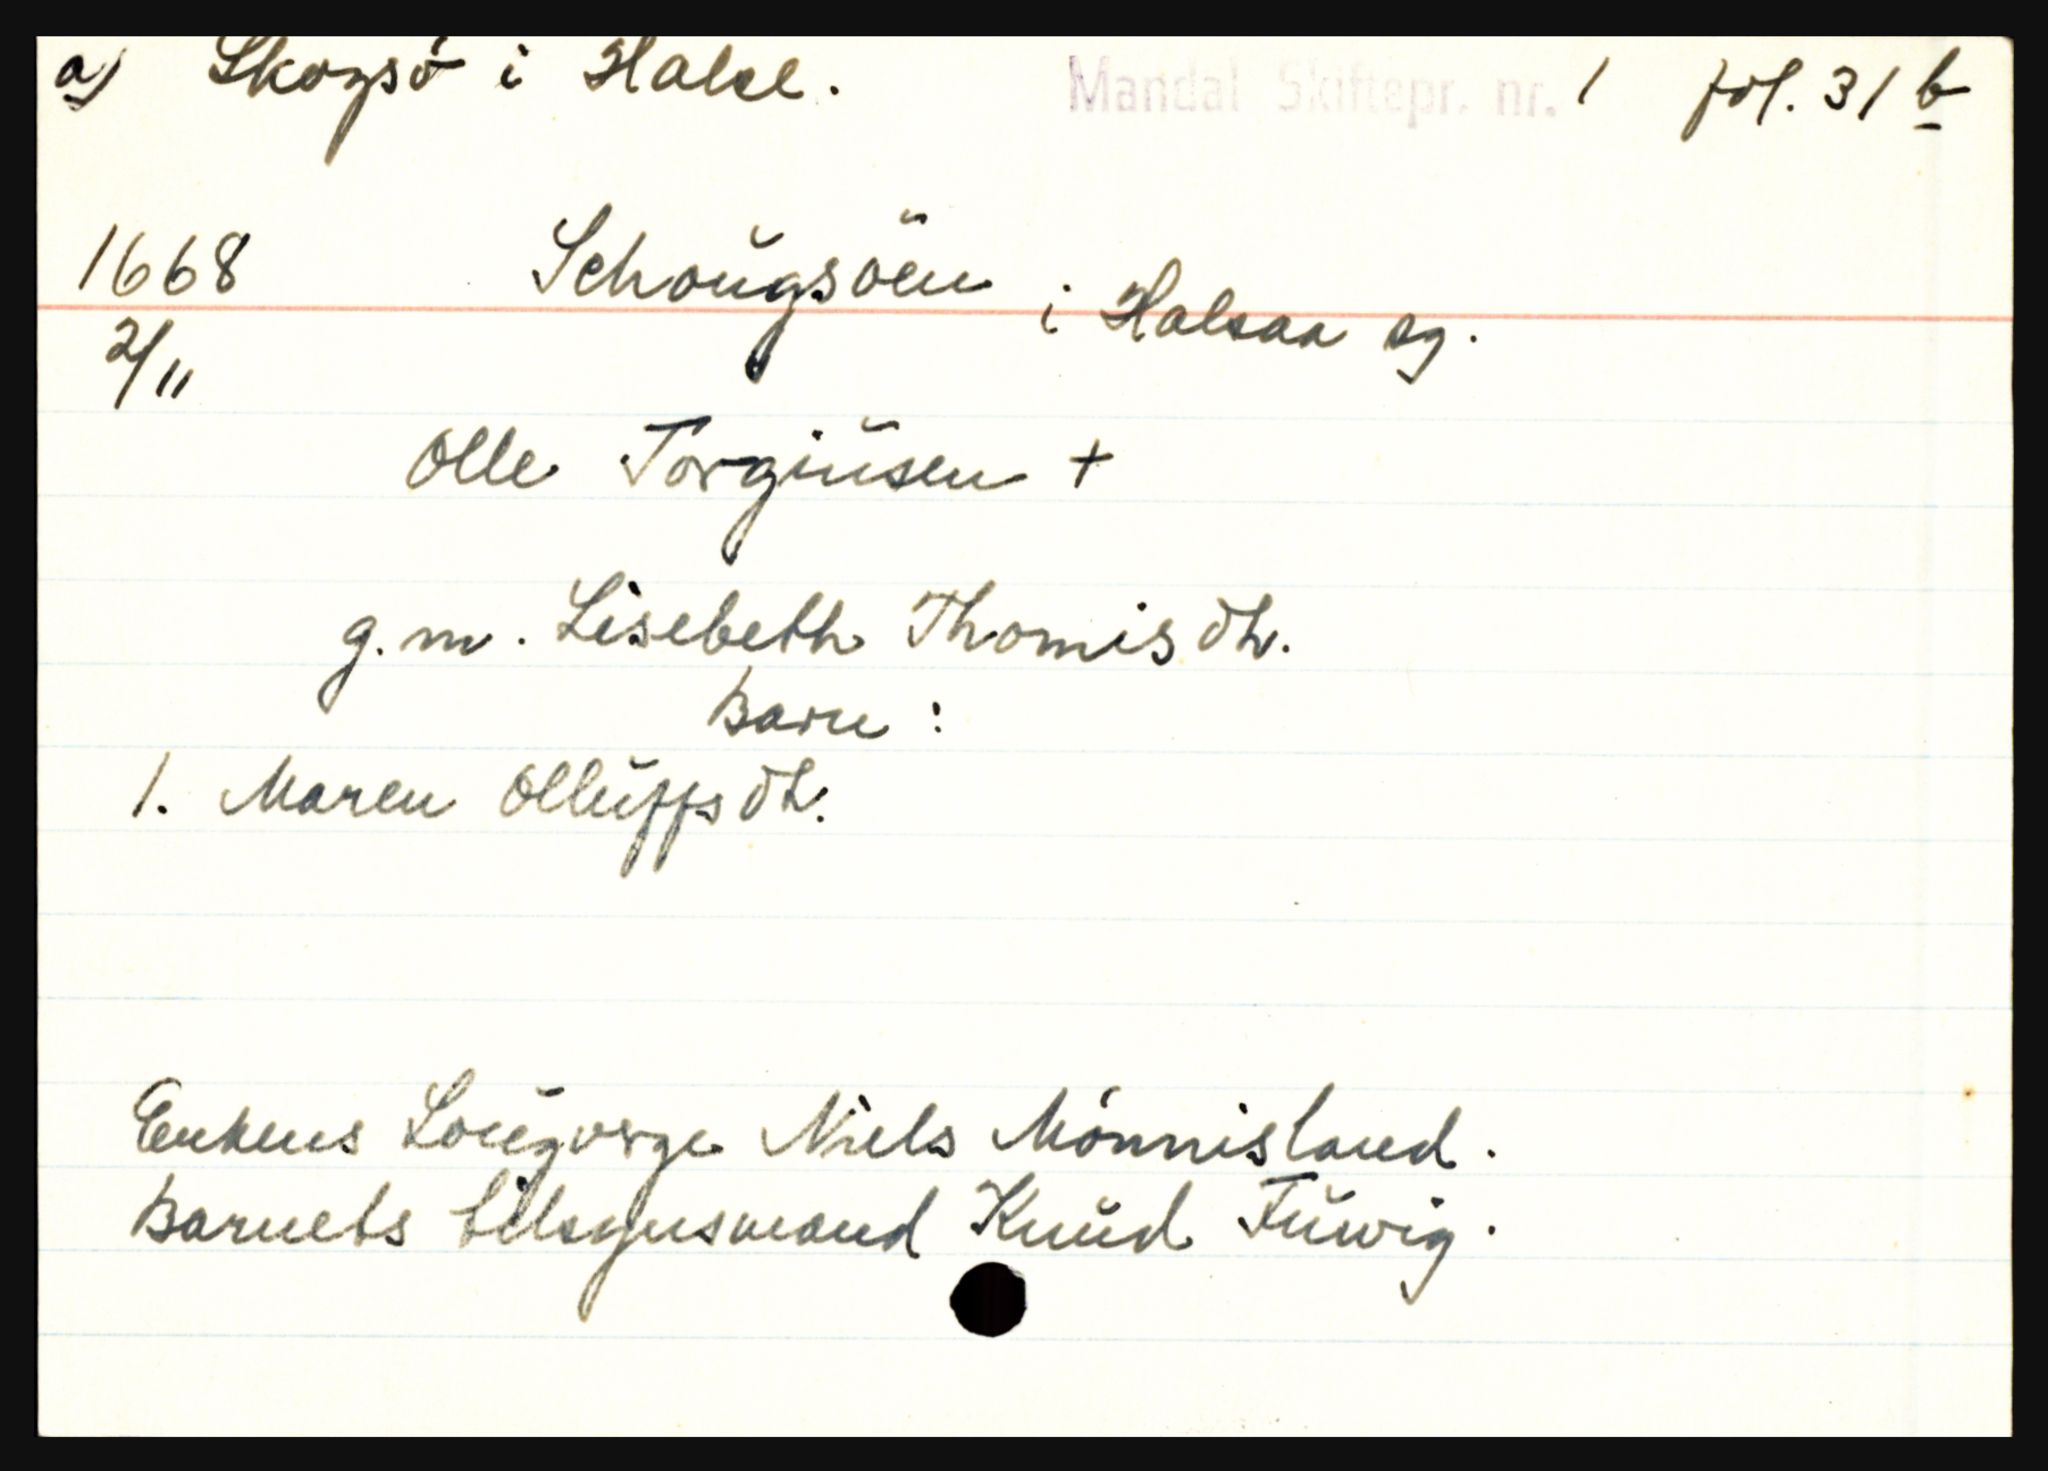 a) Skogsö i Halse. Mandal Skiftepr. nr. 1 fol. 31 b
1668 Schoŭgsöen i Halsaa sg.
2/11
Olle Torgiŭsen +
g. m. Lisebeth Thomisdtr.
Barn :
1. Maren Ollŭffsdtr.
Enkens Loŭgverge Niels Mönnisland.
Barnets tilsynsmand Knŭd Fŭwig.